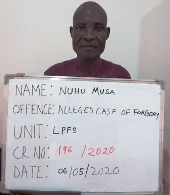 NAME: NUHU MUSA
OFFENCE: ALLEGED CASE OF FORGERY
UNIT: LPFS
CR.NO: 196/2020
DATE: 06/05/2020